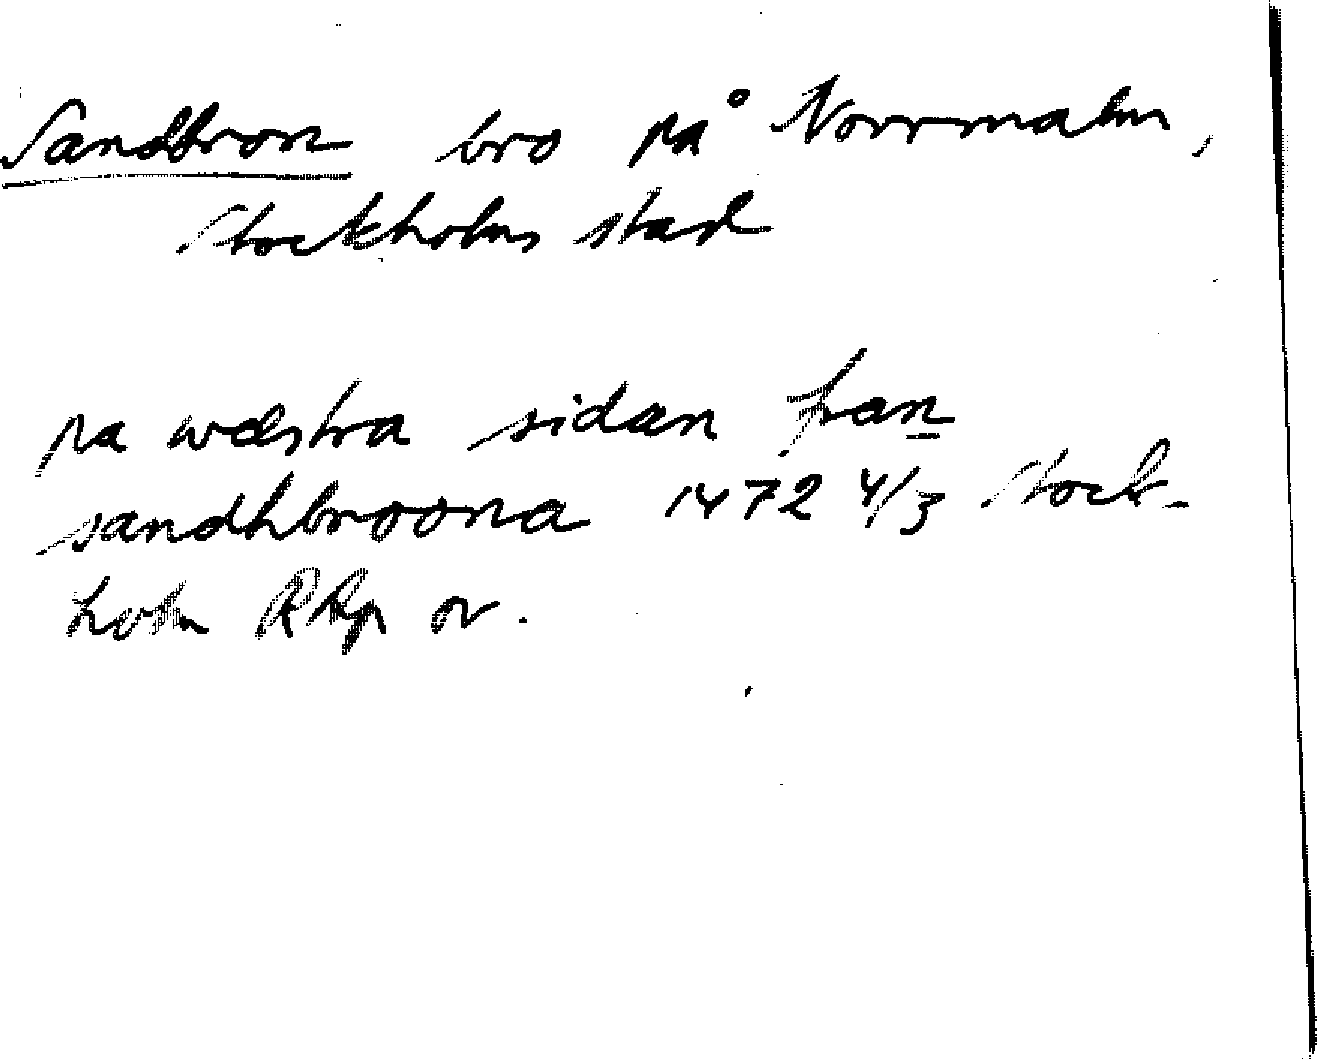 Sandbron bro på Norrmalm,
Stockholms stad
pa wæstra sidan fran
sandhbroona 1472 4/3 Stock-
holm RAp or.